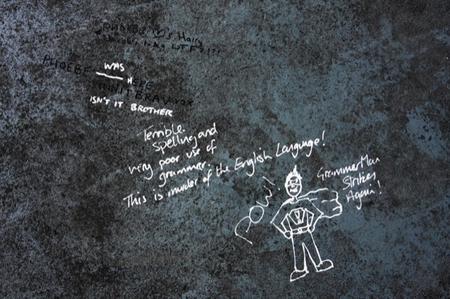 WAS
PHOEBE
H
ISN'T IT BROTHER
Terrible
Spelling and
very poor use of
grammer.
This is murder of the English Language!
POW!
GrammerMan
Strikes
Again!